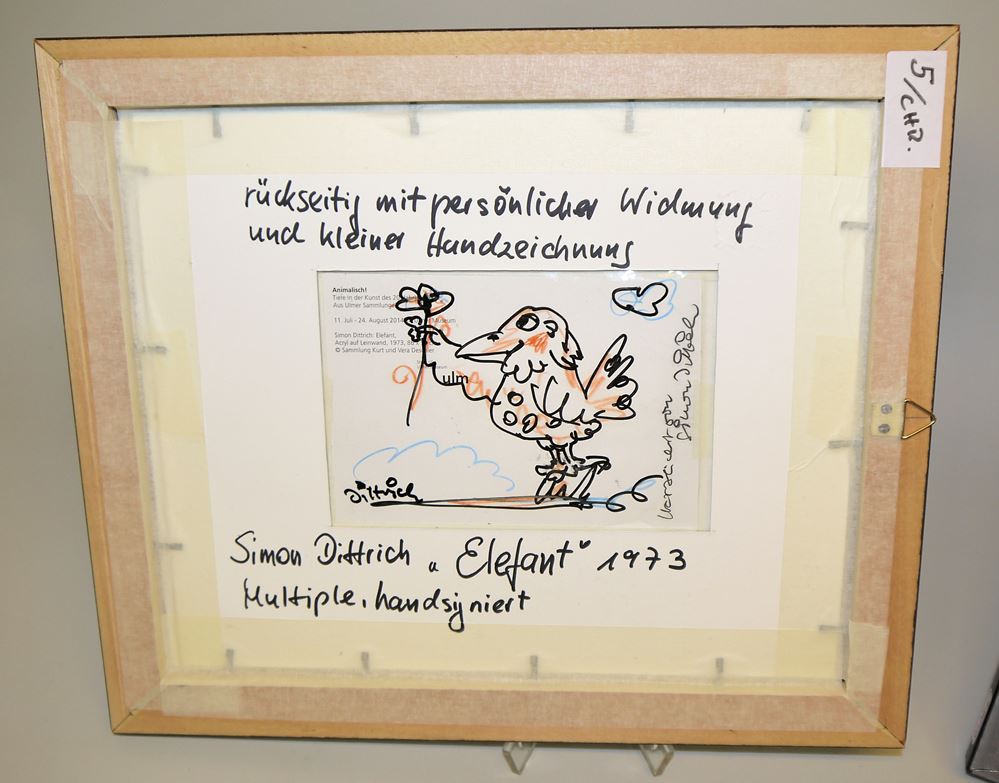 5/CHR.
rückseitig mit persönlicher Widmung
und kleiner Handzeichnung
Animalisch!
Tiele in der Kunst des 20.
Aus Ulmer Sammlungen
11. Juli - 24. August 2014 Museum
Simon Dittrich: Elefant,
Acryl auf Leinwand, 1973, 80 x
© Sammlung Kurt und Vera Deschler
ulm
von
Simon Dittrich
Dittrich
Simon Dittrich „Elefant“ 1973
Multiple, handsigniert